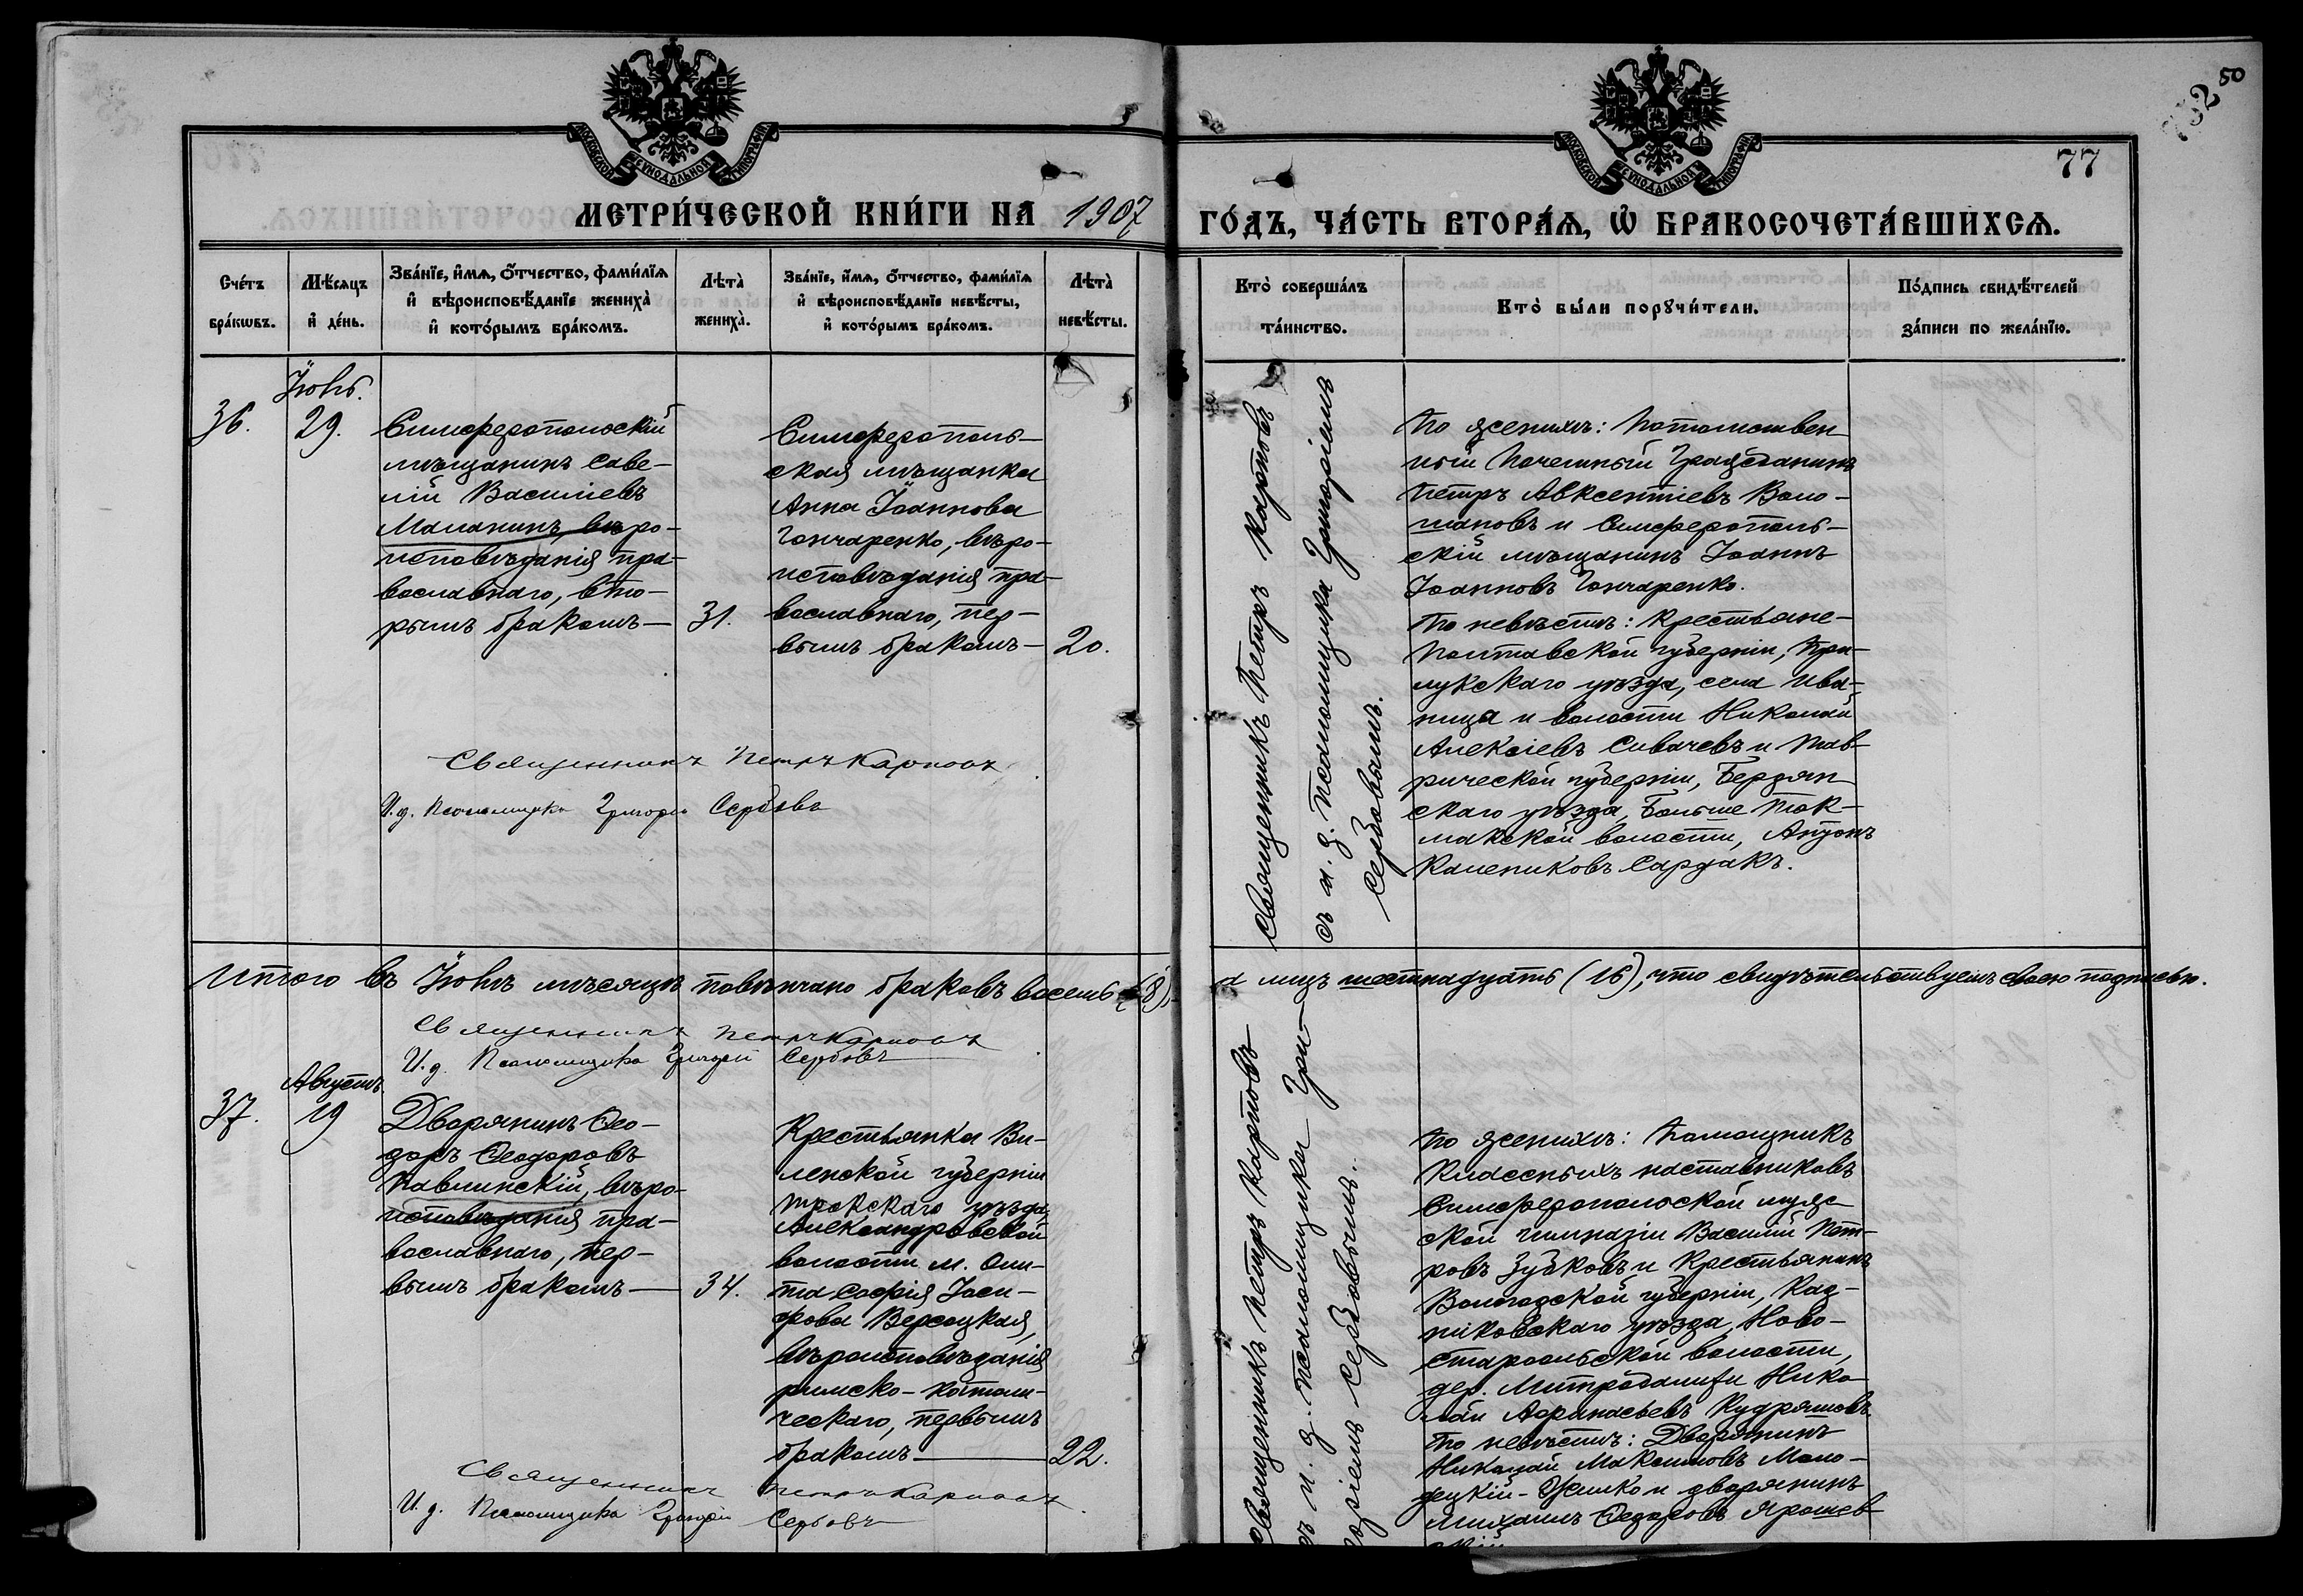 50
732
77
МОСКОВСКОЙ СѴНОДАЛЬНОЙ ТИПОГРАФІИ
МОСКОВСКОЙ СѴНОДАЛЬНОЙ ТИПОГРАФІИ
МЕТРИ́ЧЕСКОЙ КНИ́ГИ НА 1907
ГО́ДЪ, ЧА́СТЬ ВТОРА́Ѧ, Ѽ БРАКОСОЧЕТА́ВШИХСѦ.
Сче́тъ
бра́кѡвъ.
Мѣ́сѧцъ
и҆ де́нь.
Зва́нїе, и҆́мѧ, ѻ҆́тчество, фами́лїѧ
и҆ вѣроисповѣ́данїе жениха̀
и҆ кото́рымъ бра́комъ.
Лѣта̀
жениха̀.
Зва́нїе, и҆́мѧ, ѻ҆́тчество, фами́лїѧ
и҆ вѣроисповѣ́данїе невѣ́сты,
и҆ кото́рымъ бра́комъ.
Лѣта̀
невѣ́сты.
Кто̀ соверша́лъ
та́инство.
Кто̀ бы́ли порꙋчи́тели.
По́дпись свидѣ́телей
за́писи по жела́нїю.
Іюнь.
36.
29.
Симферопольскій
мѣщанинъ Саве-
лій Василіевъ
Маланинъ, вѣро-
исповѣданія пра-
вославнаго, вто-
рымъ бракомъ —
31.
Симферополь-
ская мѣщанка
Анна Іоаннова
Гончаренко, вѣро-
исповѣданія пра-
вославнаго, пер-
вымъ бракомъ —
20.
Священникъ Петръ Карповъ
съ и. д. псаломщика Григоріемъ
Сербовымъ.
По женихѣ: Потомствен
ный Почетный Гражданинъ
Петръ Авксентіевъ Воло-
шановъ и Симферополь-
скій мѣщанинъ Іоаннъ
Іоанновъ Гончаренко.
По невѣстѣ: Крестьяне-
Полтавской губерніи, При-
лукскаго уѣзда, села Ива-
ница и волости Николай
Алексіевъ Сивачевъ и Тав-
рической губерніи, Бердян
скаго уѣзда, Больше Ток-
макской волости, Антонъ
Калениковъ Сардакъ.
Священникъ Петръ Карповъ
И. д. Псаломщика Григорій Сербовъ
Итого въ Іюнѣ мѣсяцѣ повѣнчано браковъ восемь (8),
а лицъ шестнадцать (16), что свидѣтельствуемъ своею подписью.
Священникъ Петръ Карповъ
И. д. Псаломщика Григорій Сербовъ
Августъ.
37.
19
Дворянинъ Ѳео-
доръ Ѳеодоровъ
Павлинскій, вѣро-
исповѣданія пра-
вославнаго, пер-
вымъ бракомъ —
34.
Крестьянка Ви-
ленской губерніи
Трокскаго уѣзда
Александровской
волости м. Оли-
та Софія Іоси-
фова Версоцкая,
вѣроисповѣданія
римско-католи-
ческаго, первымъ
бракомъ —
22.
Священникъ Петръ Карповъ
съ и. д. псаломщика Гри-
горіемъ Сербовымъ.
По женихѣ: Помощникъ
Классныхъ наставниковъ
Симферопольской муж-
ской гимназіи Василій Пет-
ровъ Зубковъ и Крестьянинъ
Вологодской губерніи, Кад-
никовскаго уѣзда, Ново-
старосельской волости,
дер. Митрофанихи Нико-
лай Аѳанасьевъ Кудряшовъ.
По невѣстѣ: Дворянинъ
Николай Максимовъ Моло-
децкій-Жилко и дворянинъ
Михаилъ Ѳедоровъ Ярошев
скій
Священникъ Петръ Карповъ
И. д. Псаломщика Григорій Сербовъ